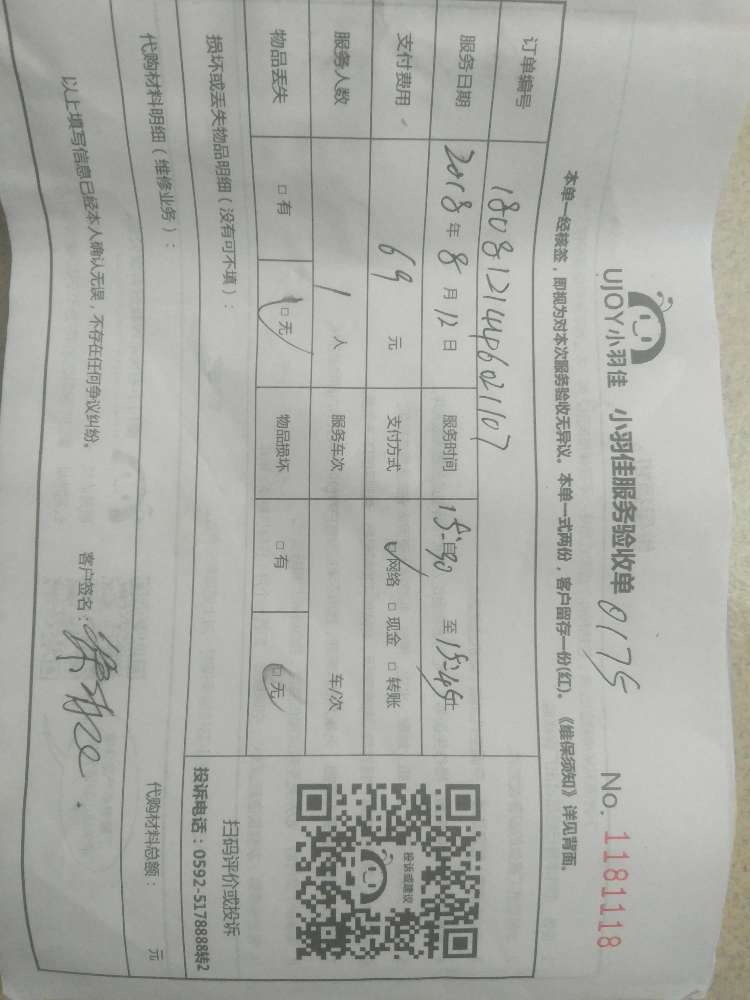 UJOY小羽佳 小羽佳服务验收单 0175 No. 1181118
本单一经核签，即视为对本次服务验收无异议。本单一式两份，客户留存一份(红)。《维保须知》详见背面。
订单编号 1808121446021107
服务日期 2018年8月12日 服务时间 15:30 至 15:45止
支付费用 69 元 支付方式 □网络 □现金 □转账
服务人数 1 人 服务车次 车/次
物品丢失 □有 □无 物品损坏 □有 □无
投诉或建议
扫码评价或投诉
投诉电话：0592-5178888转2
损坏或丢失物品明细（没有可不填）：
代购材料明细（维修业务）： 代购材料总额： 元
以上填写信息已经本人确认无误，不存在任何争议纠纷。 客户签名：